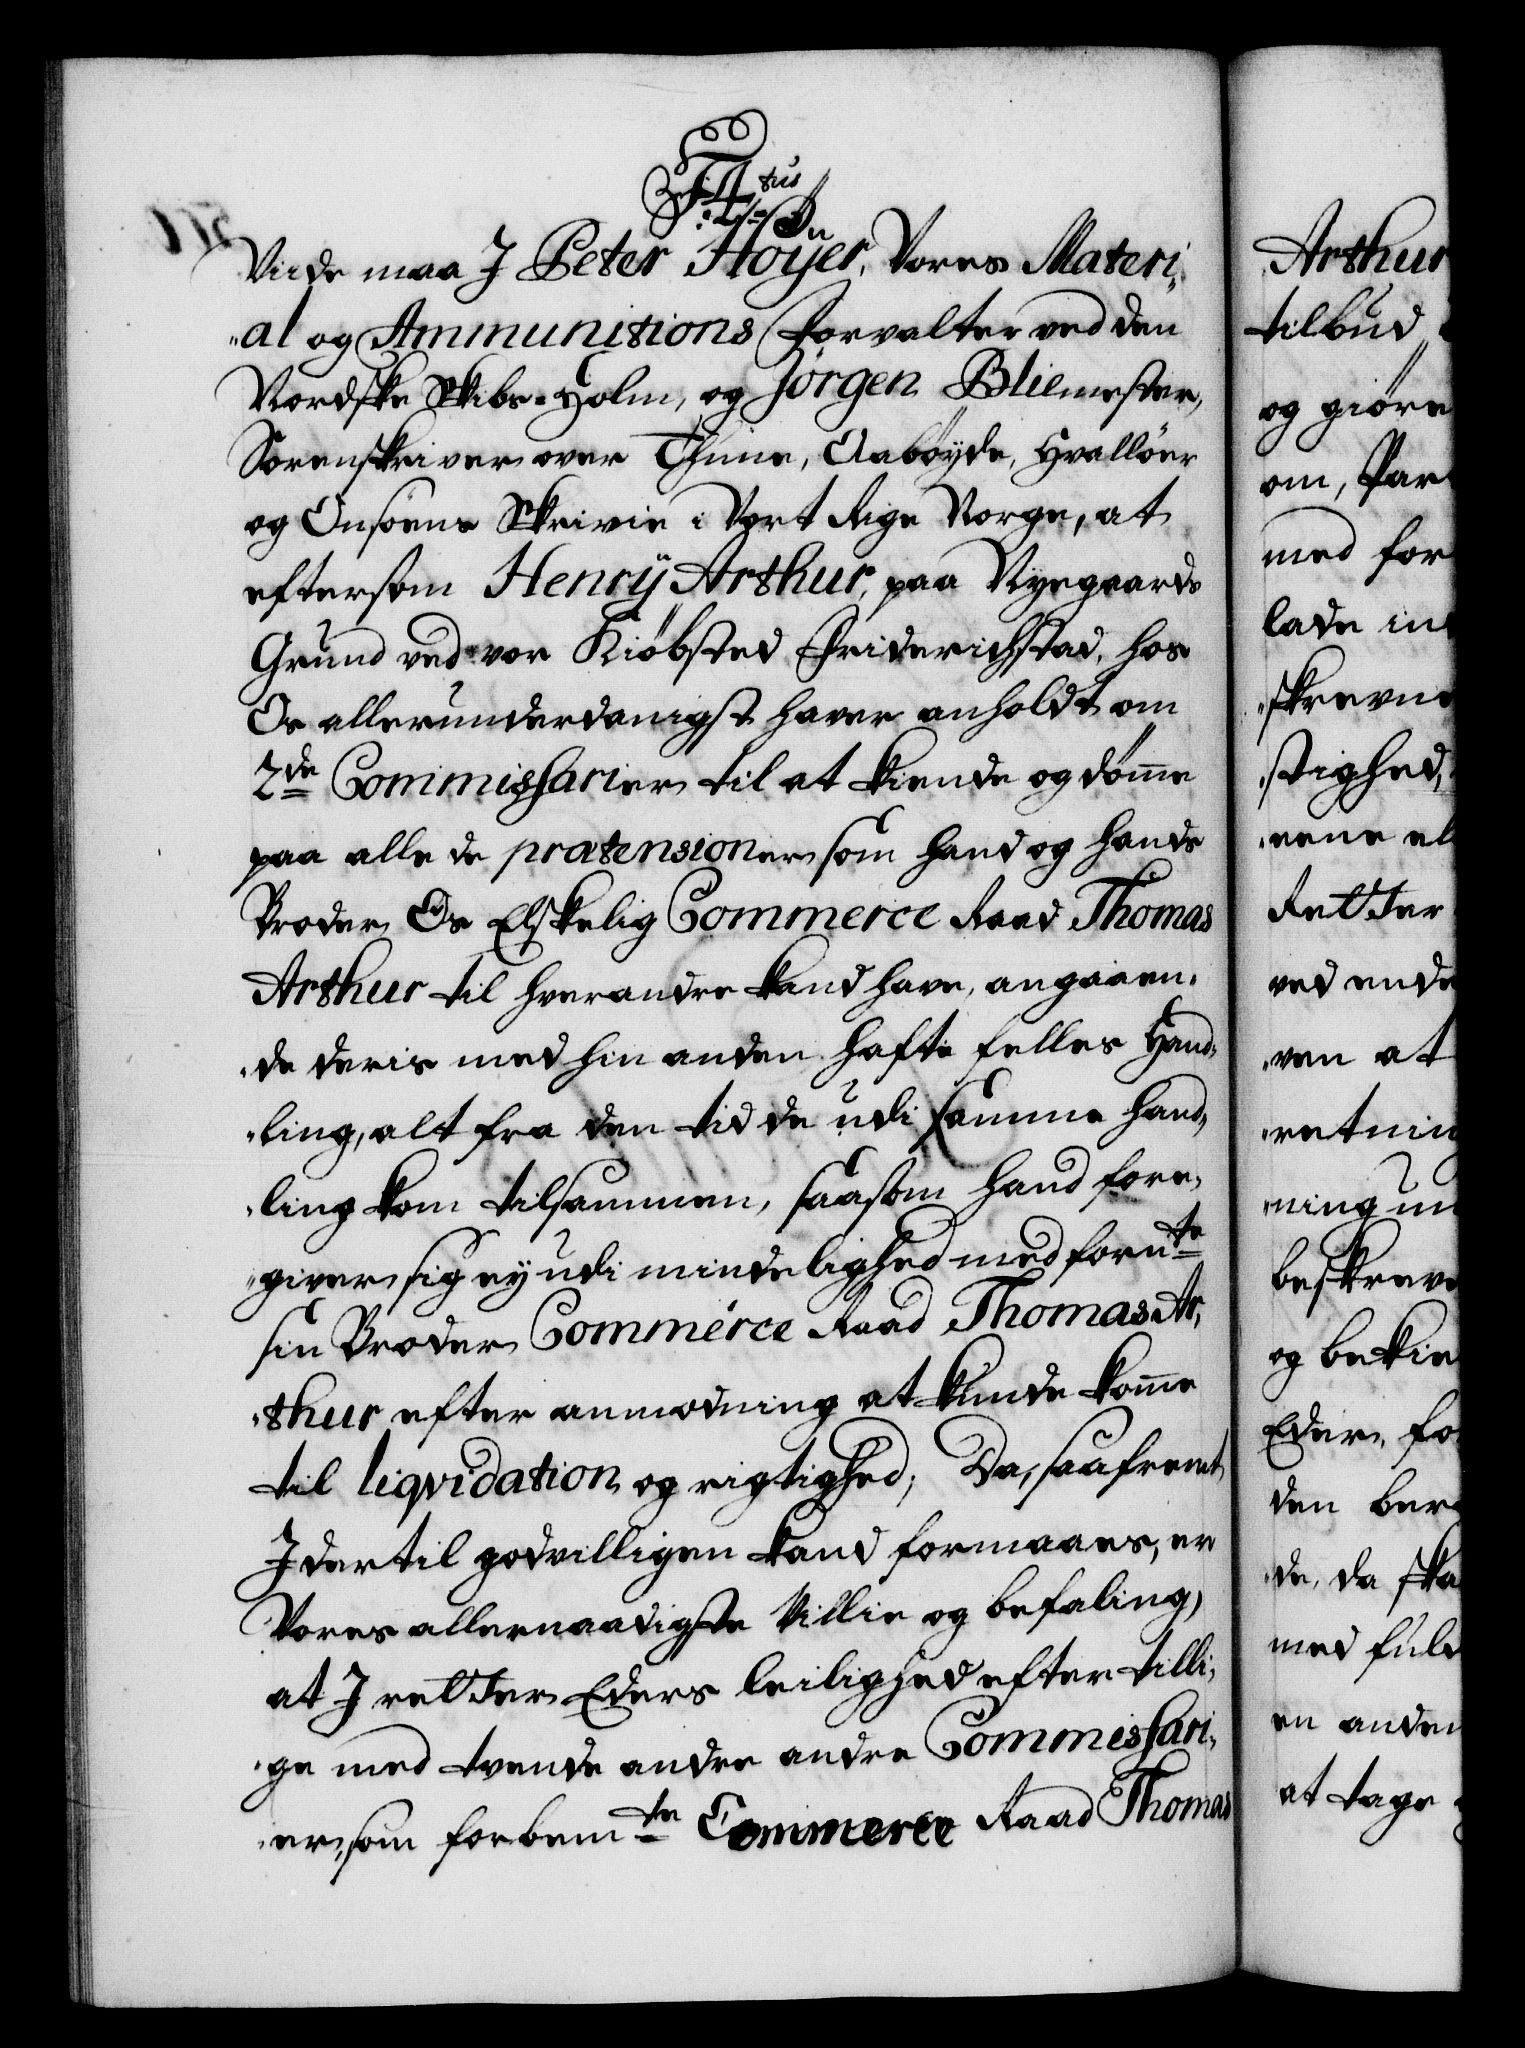 F4tus
Vide maa J Peter Höÿer, Vores Materi¬
al og Ammunitions Forvalter ved den
Nordske Skibs-Holm, og Jörgen Bliemester,
Sorenskriver over Thune, Aaböyde, Hvallöer
og Onsöens Skrivie i Vort Rige Norge, at
eftersom Henrÿ Arthur, paa Nyegaards
Grund ved vor Kiöbsted Friderichstad, hos
Os allerunderdanigst haver anholdt om
2de Commissarier til at kiende og dömme
paa alle de prætensioner som hand og hands
Broder Os Elskelig Commerce Raad Thomas
Arthur til hverandre kand have, angaaen¬
de deris med hin anden hafte felles Hand¬
ling, alt fra den tid de udi samme hand¬
ling kom tilsammen, saasom hand fore¬
giver sig ey udi mindelighed med fornte
sin Broder Commerce Raad Thomas Ar¬
thur efter anmodning at kunde komme
til liqvidation og rigtighed; Da, saafremt
J dertil godvilligen kand formaaes, er
Vores allernaadigste Villie og befaling,
at J retter Eders leilighed efter tilli¬
ge med tvende andre andre Commissari¬
er, som forbemte Commerce Raad Thomas
Arthur
tilbud
og giöre
om, Par
med for
lade ind
skrevne
stighed,
eene el
Retter
ved ende
ven at
retning
ning un
beskreve
og bekie
Eder, fo
den ber
de, da ska
med fuld
en anden
at tage